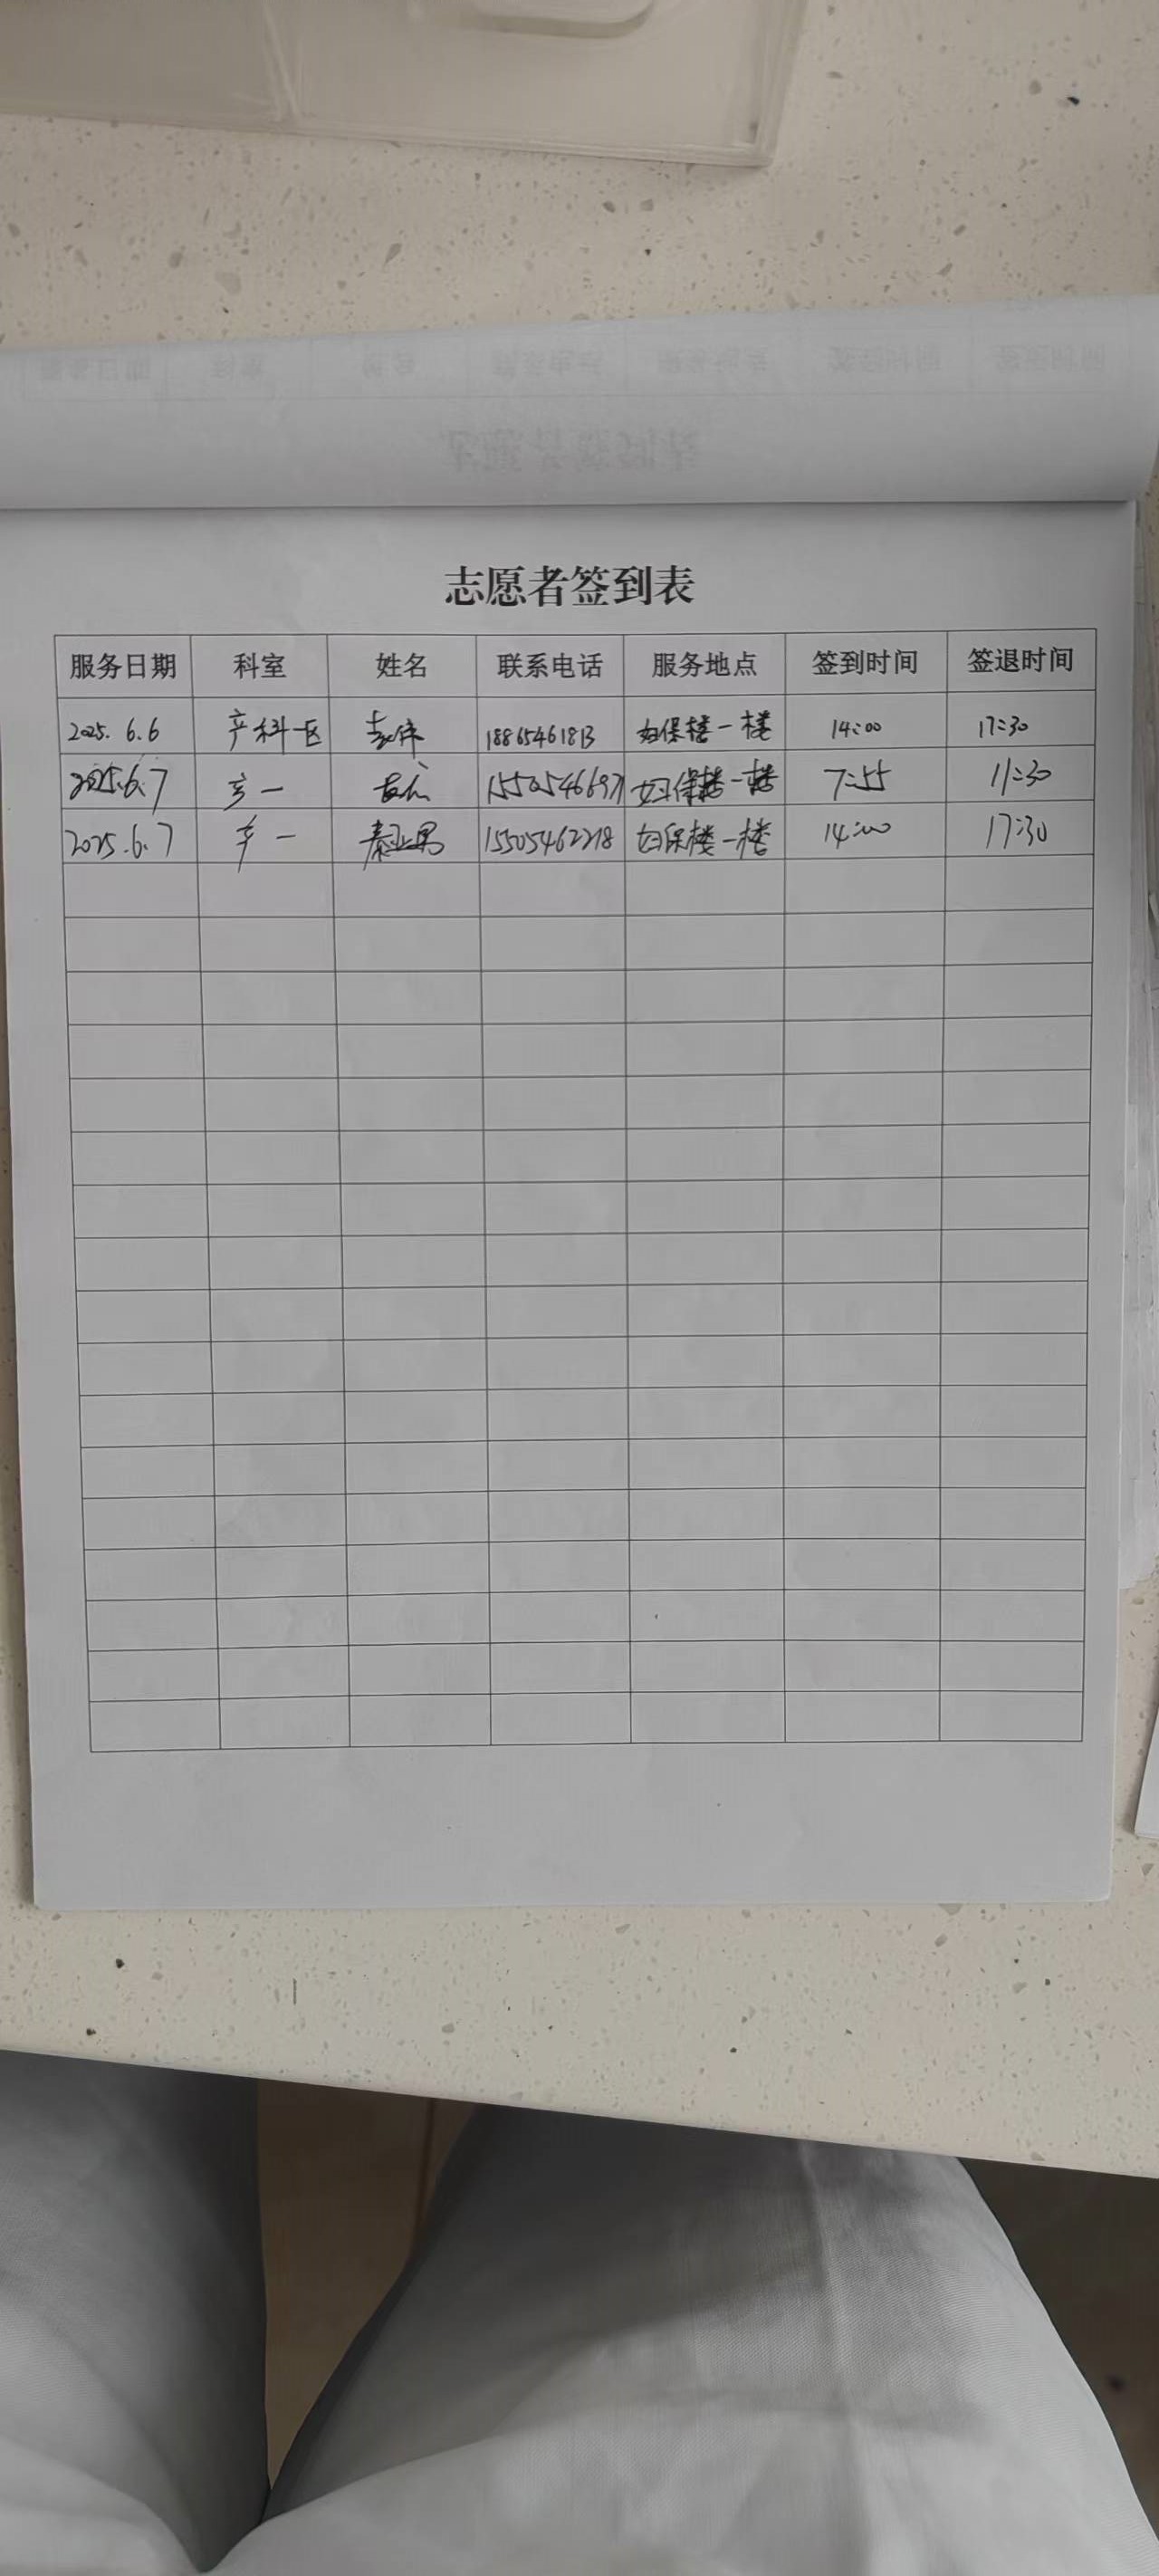 志愿者签到表
服务日期 科室 姓名 联系电话 服务地点 签到时间 签退时间
2025. 6.6 产科一区 18865461813 妇保楼一楼 14:00 17:30
2025.6.7 产一 妇保楼一楼 7:55 11:30
2025.6.7 产一 秦亚男 15505462218 妇保楼一楼 14:00 17:30